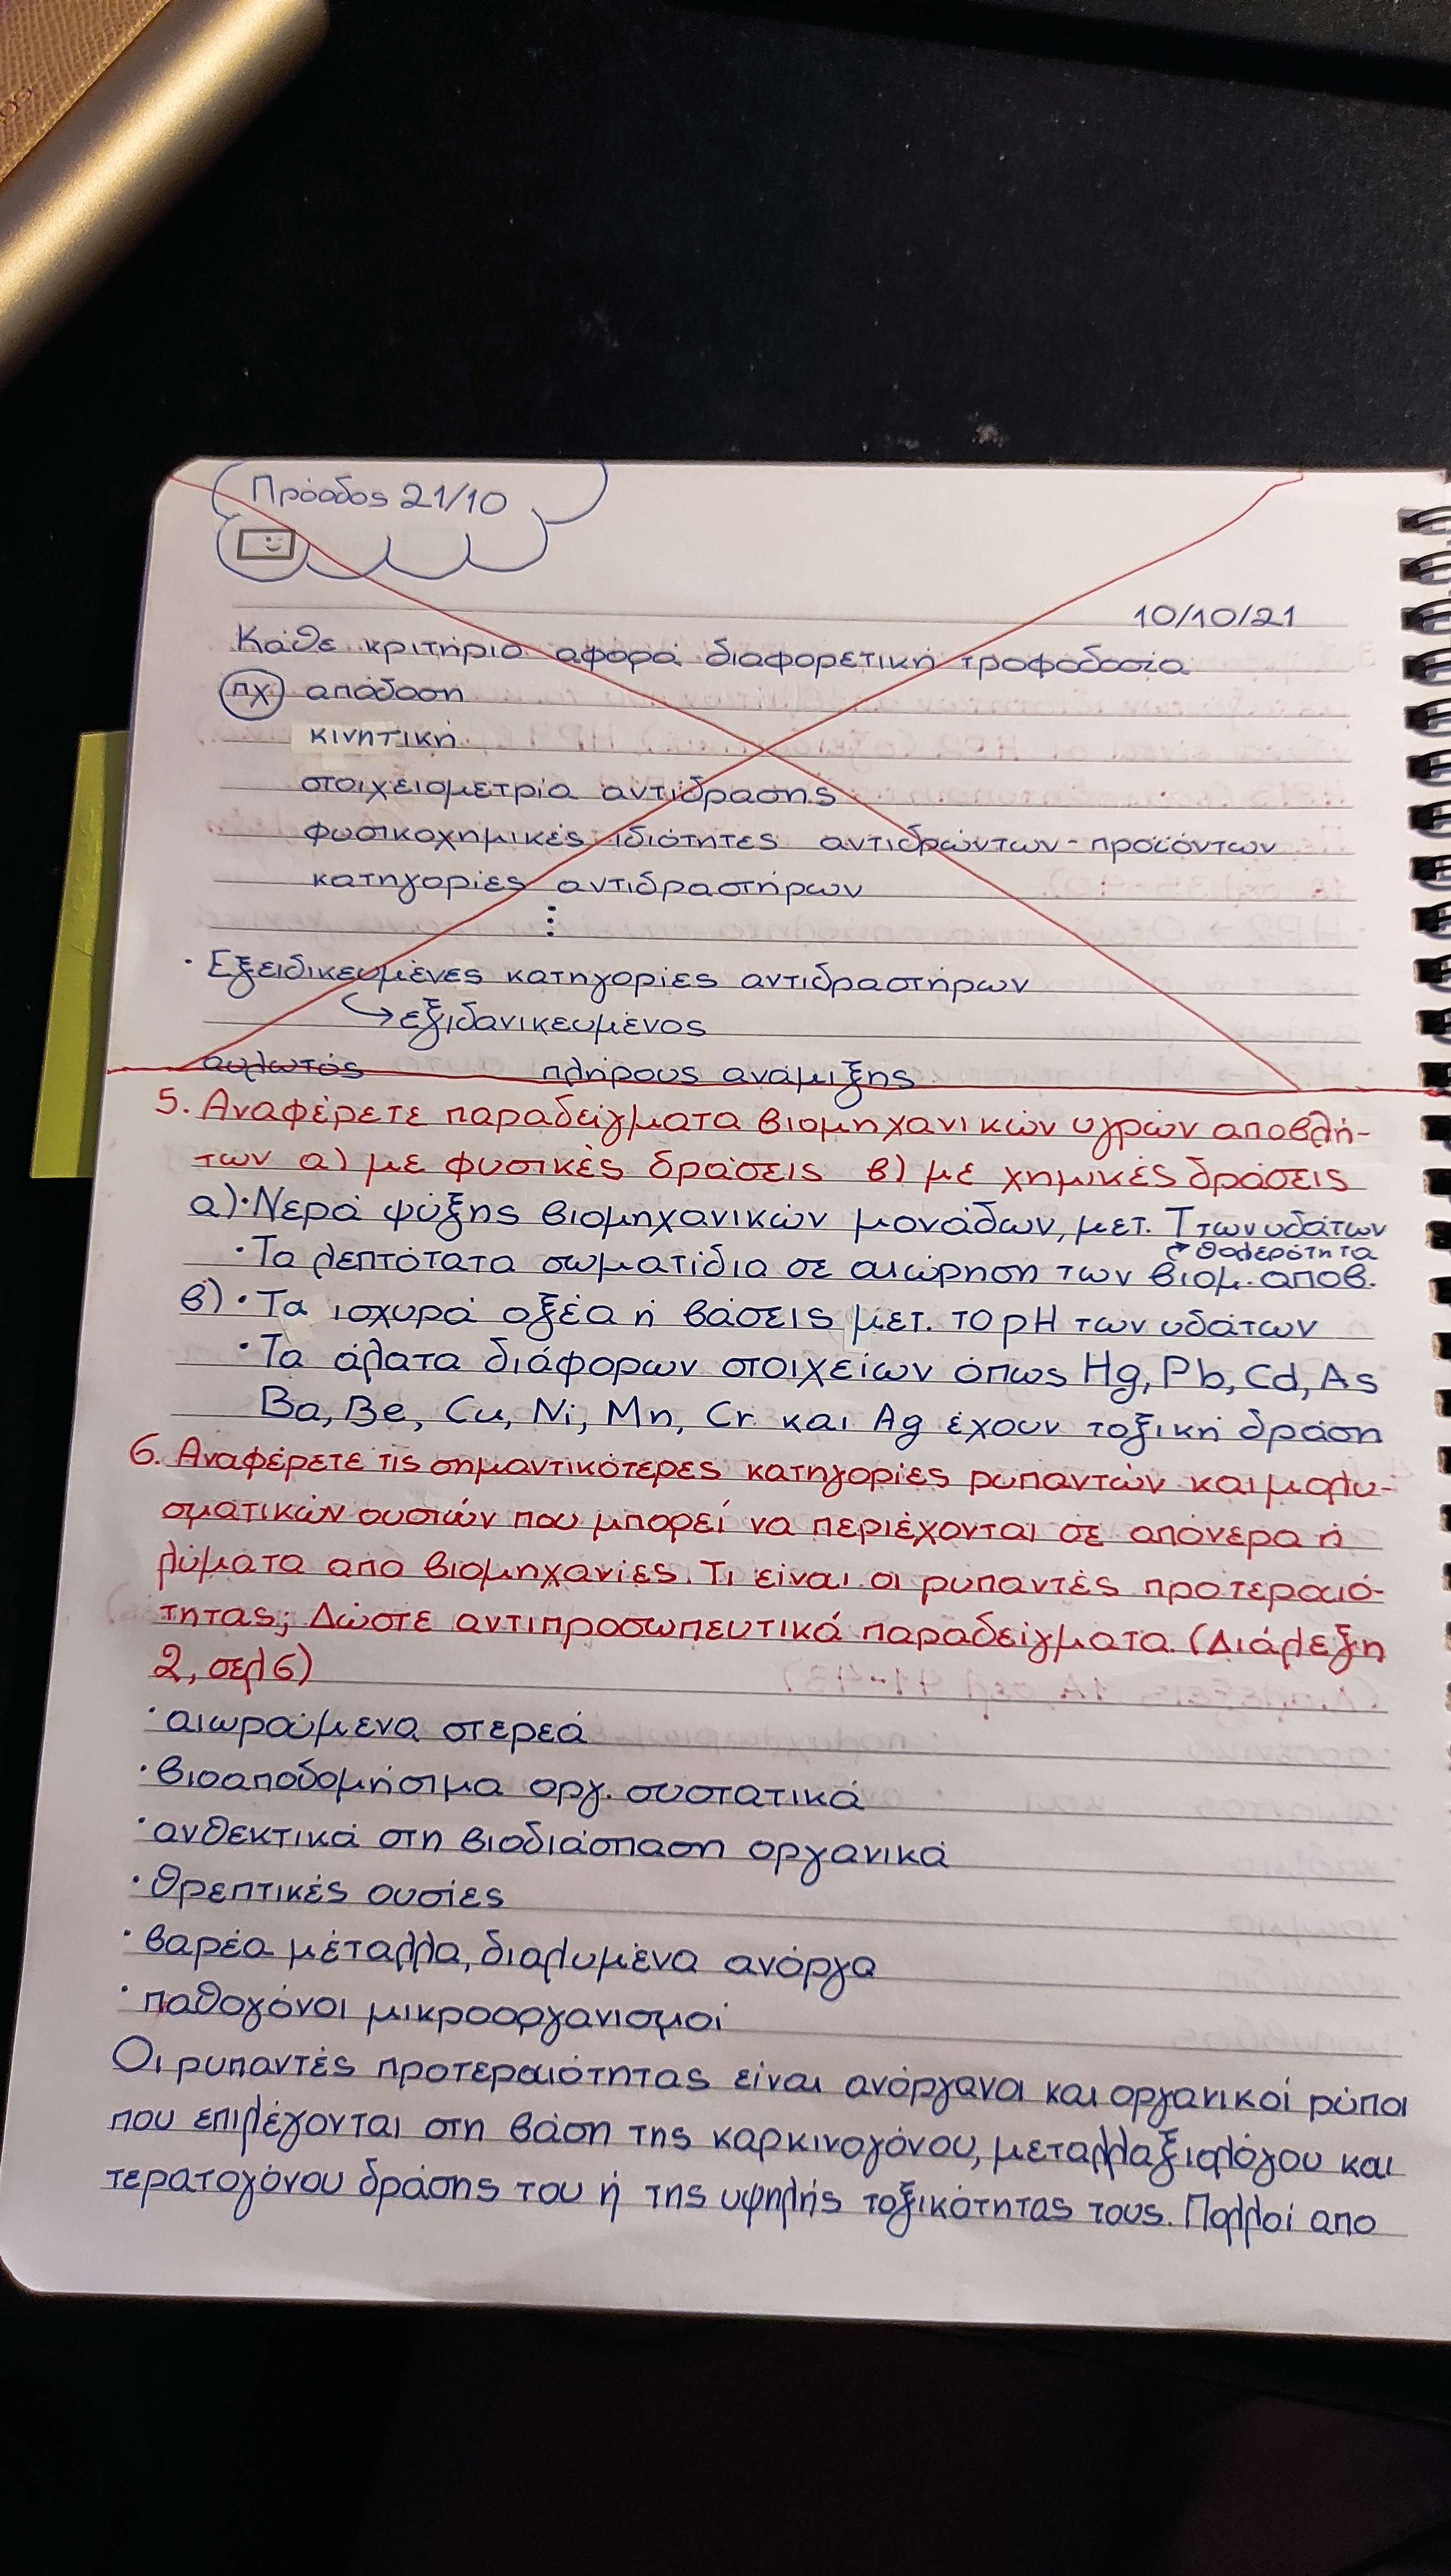 Πρόοδος 21/10
10/10/21
Κάθε κριτήριο αφορά διαφορετική τροφοδοσία
πχ απόδοση
κινητική
στοιχειομετρία αντίδρασης
φυσικοχημικές ιδιότητες αντιδρώντων - προϊόντων
κατηγορίες αντιδραστήρων
⋮
· Εξειδικευμένες κατηγορίες αντιδραστήρων
↳ εξιδανικευμένος
αυλωτός πλήρους ανάμιξης
5. Αναφέρετε παραδείγματα βιομηχανικών υγρών αποβλή-
των α) με φυσικές δράσεις β) με χημικές δράσεις
α) · Νερά ψύξης βιομηχανικών μονάδων, μετ. Τ των υδάτων
↱ θολερότητα
· Τα λεπτότατα σωματίδια σε αιώρηση των βιομ. αποβ.
β) · Τα ισχυρά οξέα ή βάσεις μετ. το pH των υδάτων
· Τα άλατα διάφορων στοιχείων όπως Hg, Pb, Cd, As
Ba, Be, Cu, Ni, Mn, Cr και Ag έχουν τοξική δράση
6. Αναφέρετε τις σημαντικότερες κατηγορίες ρυπαντών και μολυ-
σματικών ουσιών που μπορεί να περιέχονται σε απόνερα ή
λύματα απο βιομηχανίες. Τι είναι οι ρυπαντές προτεραιό-
τητας; Δώστε αντιπροσωπευτικά παραδείγματα (Διάλεξη
2, σελ 6)
· αιωρούμενα στερεά
· βιοαποδομήσιμα οργ. συστατικά
· ανθεκτικά στη βιοδιάσπαση οργανικά
· θρεπτικές ουσίες
· βαρέα μέταλλα, διαλυμένα ανόργα
· παθογόνοι μικροοργανισμοί
Οι ρυπαντές προτεραιότητας είναι ανόργανοι και οργανικοί ρύποι
που επιλέγονται στη βάση της καρκινογόνου, μεταλλαξιολόγου και
τερατογόνου δράσης του ή της υψηλής τοξικότητας τους. Πολλοί απο